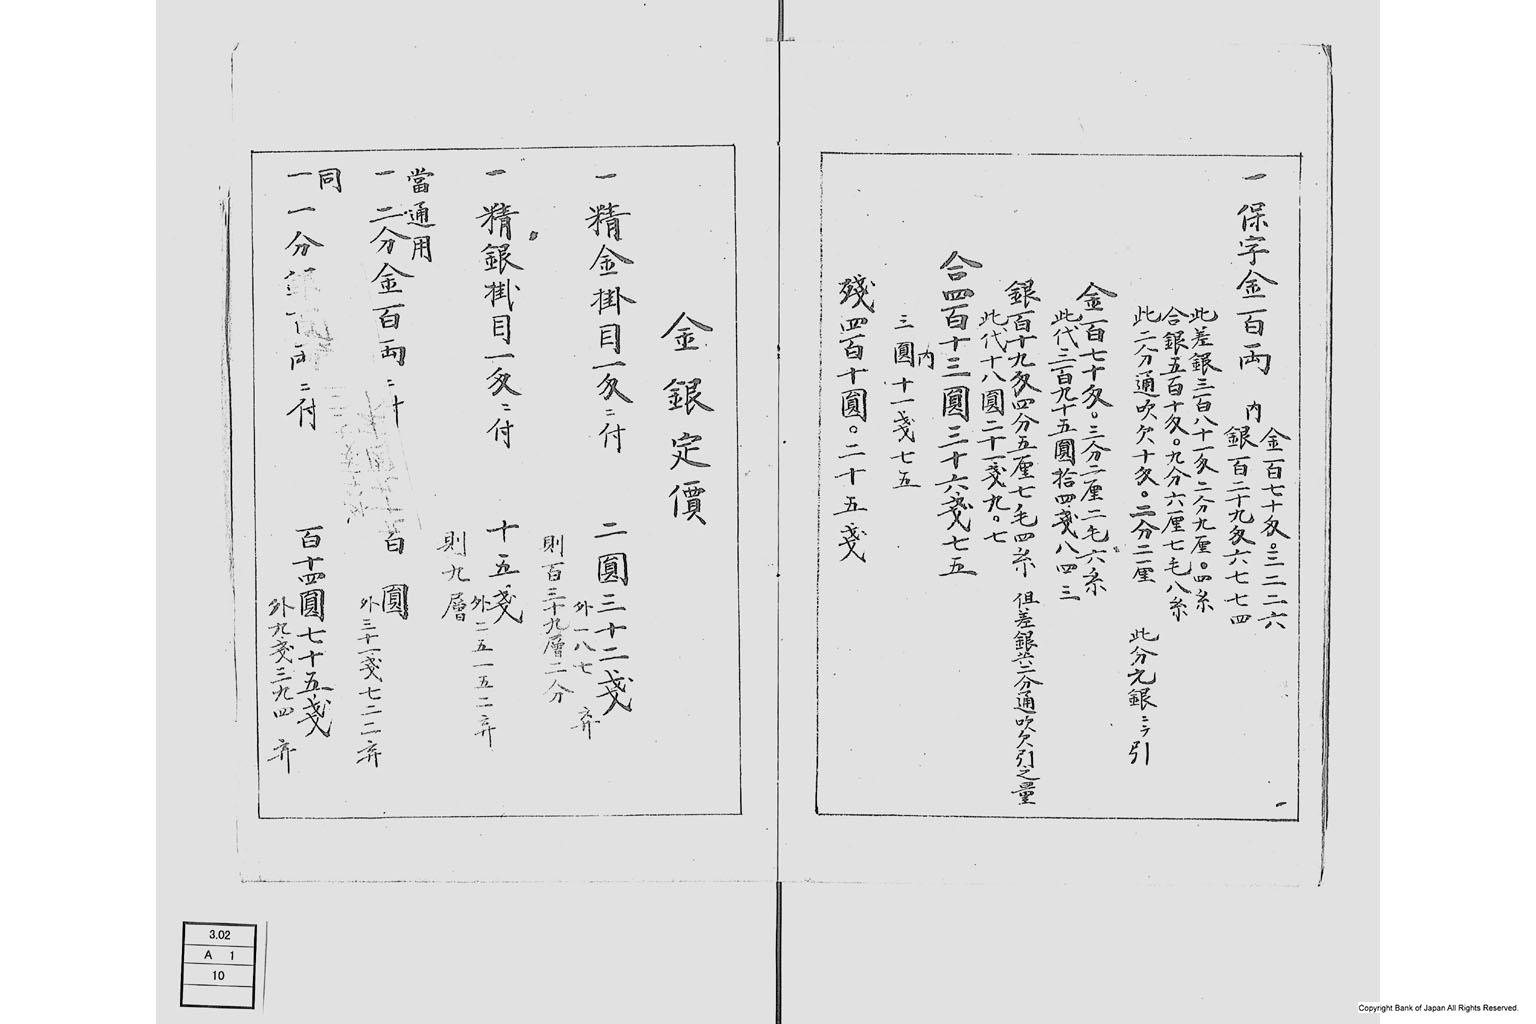 一 保字金一百両
内
金一百七十匁。三二二六
銀一百二十九匁六七七四
此差銀三百八十一匁二分九厘。四糸
合銀五百十匁。九分六厘七毛八糸
此二分通吹欠十匁。二分二厘 此分元銀ニテ引
金一百七十匁。三分二厘二毛六糸
此代三百九十五圓拾四戔八四三
銀一百十九匁四分五厘七毛四糸 但差銀共二分通吹欠引之量
此代十八圓二十一戔九。七
合四百十三圓三十六戔七五
内
三圓十一戔七五
殘四百十圓。二十五戔
金銀定價
一 精金掛目一匁ニ付 二圓三十二戔
外一八七 弃
則百三十九層二分
一 精銀掛目一匁ニ付 十五戔
外二五一五二弃
則九層
當通用
一 二分金一百両ニ付 百圓
外三十一戔七二二弃
同
一 一分銀百両ニ付 百十四圓七十五戔
外九戔三九四 弃
3.02
A 1
10
Copyright Bank of Japan All Rights Reserved.